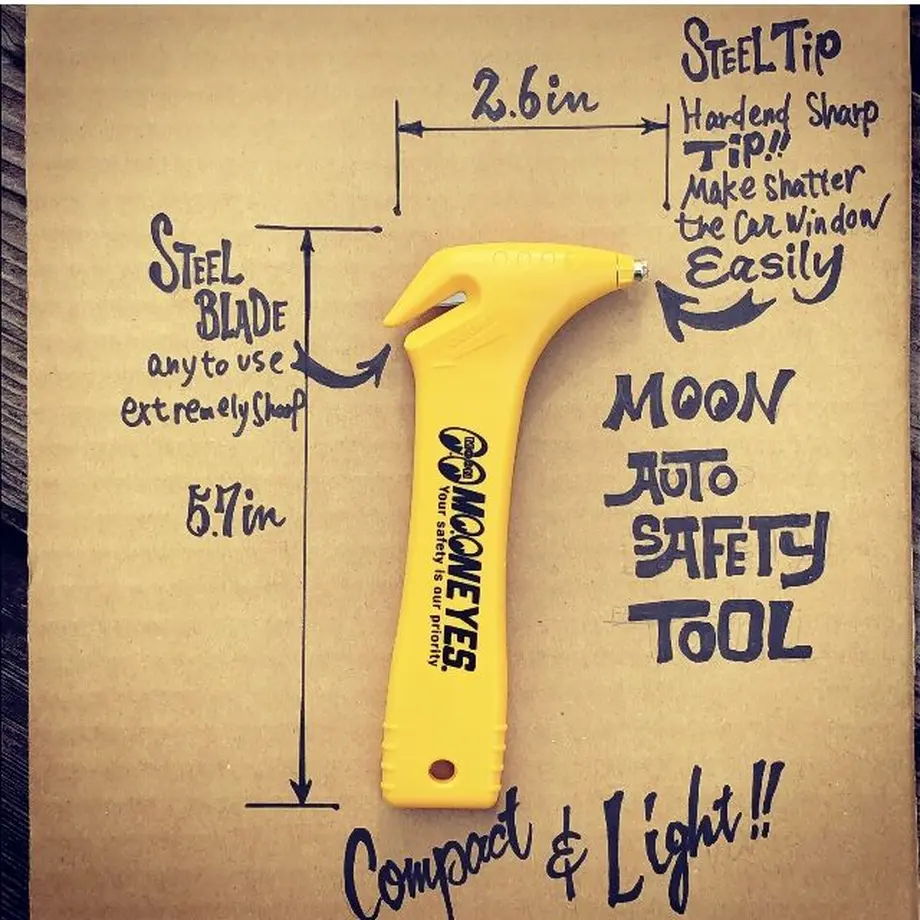 2.6in
STEEL TIP
Hardend Sharp
TIP!!
Make Shatter
the Car Window
Easily
STEEL
BLADE
any to use
extremely Sharp
5.7in
MOONEYES.
Your safety is our priority
MOON
AUTO
SAFETY
TOOL
Compact & Light!!